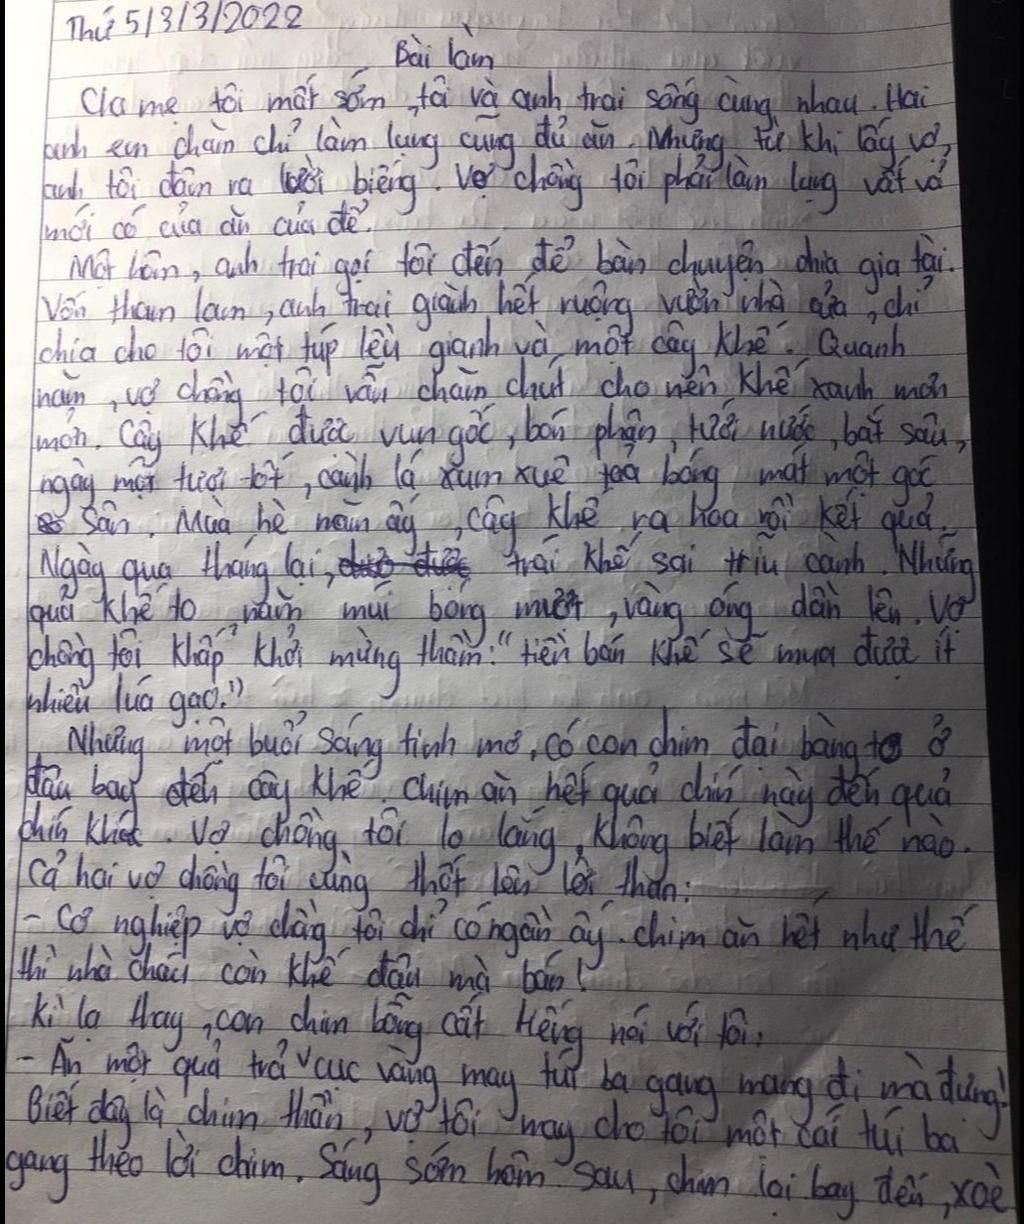 Thứ 5/3/3/2022
Bài làm
Cha mẹ tôi mất sớm, tôi và anh trai sống cùng nhau. Hai
anh em chăm chỉ làm lụng cũng đủ ăn. Nhưng từ khi lấy vợ,
anh tôi đâm ra lười biếng. Vợ chồng tôi phải làm lụng vất vả
mới có của ăn của để.
Một hôm, anh trai gọi tôi đến để bàn chuyện chia gia tài.
Vốn tham lam, anh trai giành hết ruộng vườn nhà cửa, chỉ
chia cho tôi một túp lều gianh và một cây khế. Quanh
năm, vợ chồng tôi vẫn chăm chút cho nên khế xanh mơn
mởn. Cây khế được vun gốc, bón phận, tưới nước, bắt sâu,
ngày một tươi tốt, cành lá xum xuê toả bóng mát một góc
sân. Mùa hè năm ấy, cây khế ra hoa rồi kết quả.
Ngày qua tháng lại, trái khế sai trĩu cành. Những
quả khế to năm múi bóng mượt, vàng óng dần lên. Vợ
chồng tôi khấp khởi mừng thầm: "tiền bán khế sẽ mua được ít
nhiều lúa gạo."
Nhưng một buổi sáng tinh mơ, có con chim đại bàng to ở
đâu bay đến cây khế. Chim ăn hết quả chín này đến quả
chín khác. Vợ chồng tôi lo lắng, không biết làm thế nào.
Cả hai vợ chồng tôi cùng thốt lên lời than:
- Cơ nghiệp vợ chồng tôi chỉ có ngần ấy. chim ăn hết như thế
thì nhà cháu còn khế đâu mà bán!
Kì lạ thay, con chim bỗng cất tiếng nói với tôi:
- Ăn một quả trả cục vàng may túi ba gang mang đi mà đựng!
Biết đây là chim thần, vợ tôi may cho tôi một cái túi ba
gang theo lời chim. Sáng sớm hôm sau, chim lại bay đến, xoè